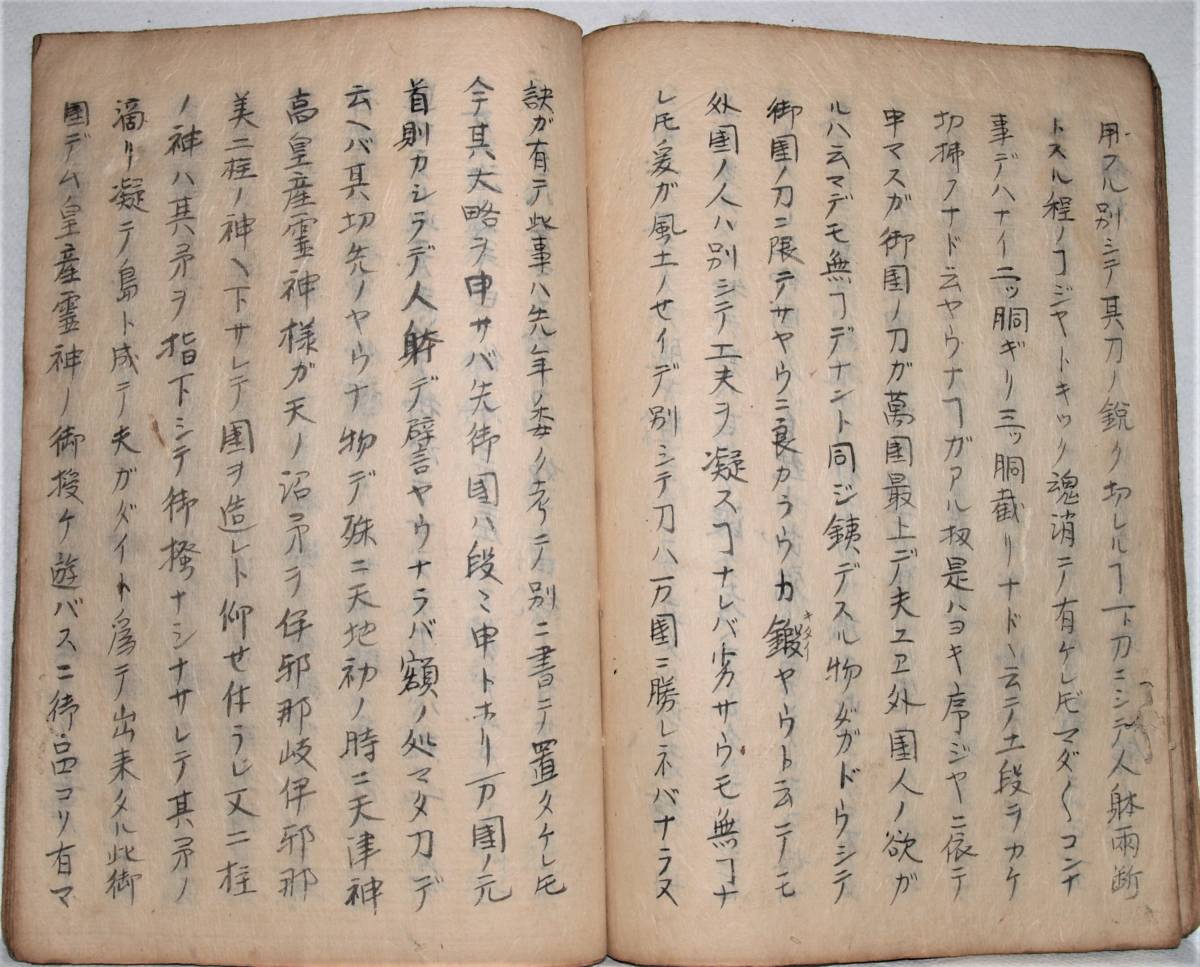 用フル別シテ其刀ノ鋭ク切レルヿ一ト刀ニシテ人躰両断
トスル程ノヿジヤトキツク魂消テ有ケレ𪜈マダ〱コンナ
事デハナイ二ッ胴ギリ三ッ胴截リナドヽ云テ土段ヲカケ
切掃フナド云ヤウナヿガアル扨是ハヨキ序ジヤニ依テ
申マスガ御国ノ刀ガ萬国最上デ夫ユヱ外国人ノ欲ガ
ルハ云マデモ無ヿデナント同ジ銕デスル物ダガドウシテ
御国ノ刀ニ限テサヤウニ良カラウカ鍛ヤウト云テモ
キタイ
外国ノ人ハ別シテ工夫ヲ凝スヿナレバ劣サウモ無ヿナ
レ𪜈爰ガ風土ノせイデ別シテ刀ハ万国ニ勝レネバナラヌ
訣ガ有テ此事ハ先年ノ委ノ考テ別ニ書テ置タケレ𪜈
今其大略ヲ申サバ先御国ハ段ミ申トホリ万国ノ元
首則カシラデ人躰デ譬言ヤウナラバ額ノ処マタ刀デ
云ヘバ其切先ノヤウナ物デ殊ニ天地初ノ時ニ天津神
高皇産霊神様ガ天ノ沼矛ヲ伊邪那岐伊邪那
美二柱ノ神ヘ下サレテ国ヲ造レト仰せ付ラレ又二柱
ノ神ハ其矛ヲ指下シテ御搔ナシナサレテ其矛ノ
滴リ凝テ島ト成テ夫ガダイト為テ出来タル此御
国デム皇産霊神ノ御授ケ遊バスニ御品コソ有マ